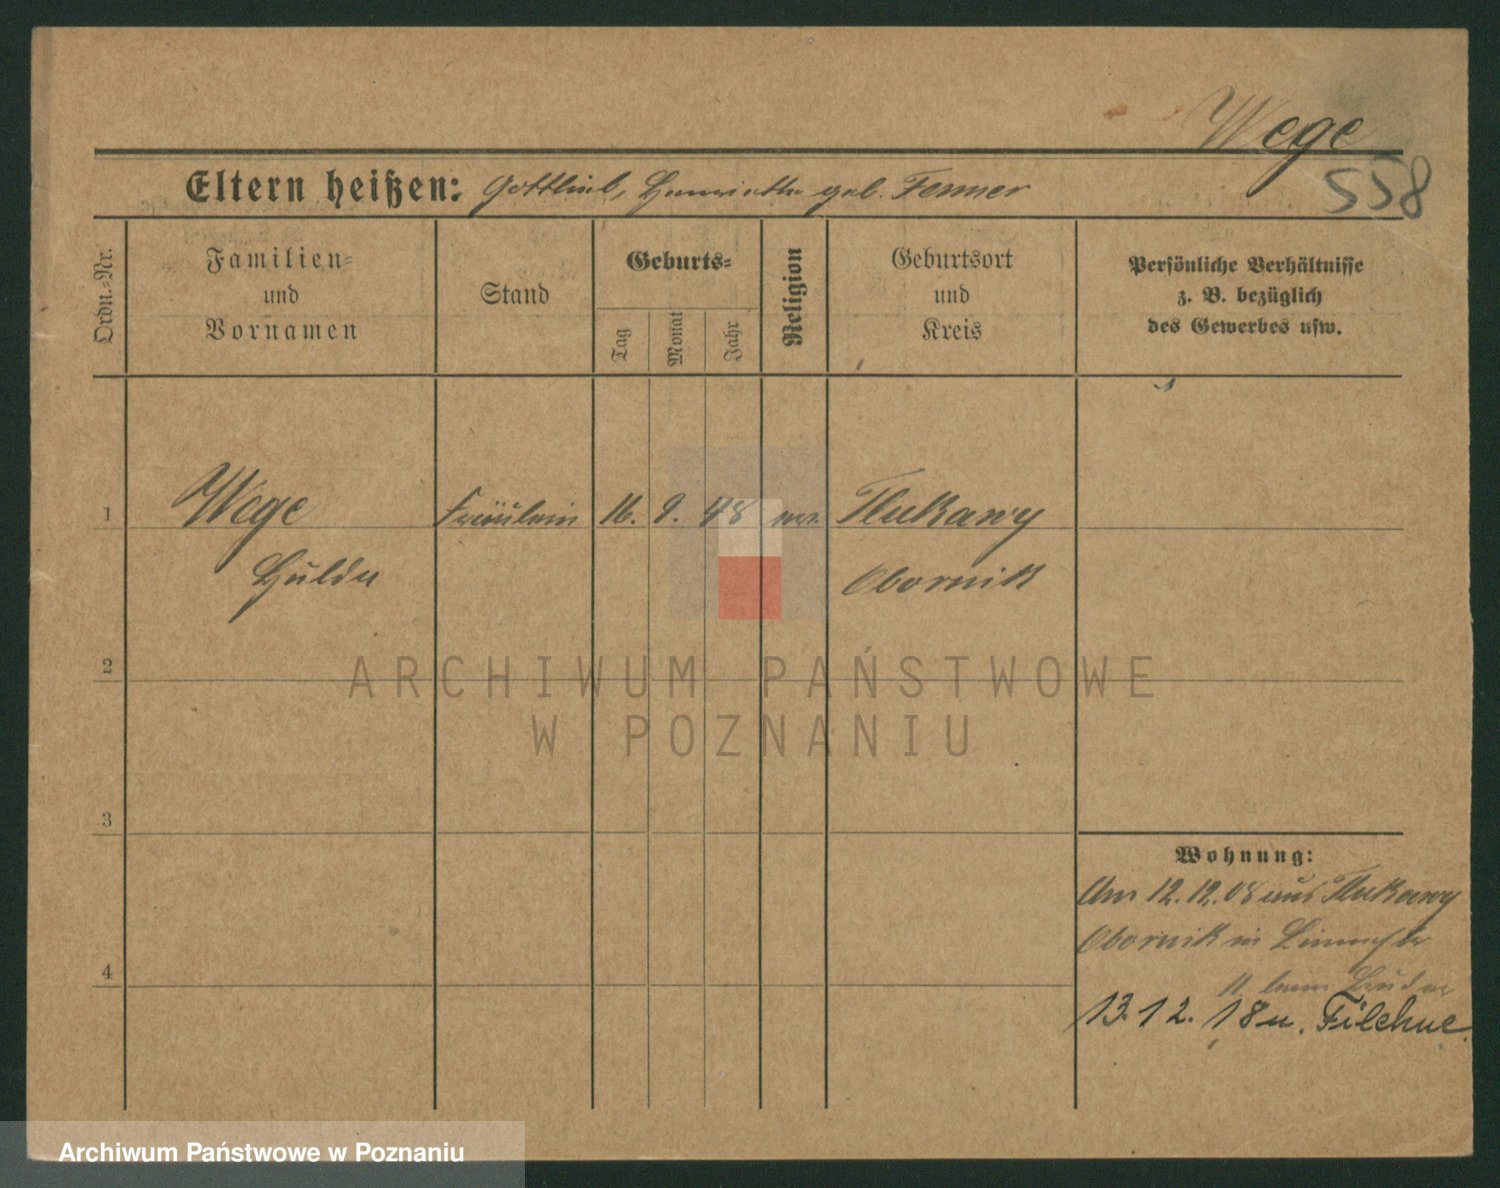 Wege
558
Eltern heißen: Gottlieb, Henriette geb. Fenner
Ordn.-Nr.
Familien-
und
Vornamen
Stand
Geburts-
Tag
Monat
Jahr
Religion
Geburtsort
und
Kreis
Persönliche Verhältnisse
z. B. bezüglich
des Gewerbes usw.
1
Wege
Hulda
Fräulein
16.
9.
48
ev.
Tlukawy
Obornik
2
3
4
Wohnung:
Am 12.12.08 aus Tlukawy
Obornik in
beim Bruder
13.12.18 n. Filehne
ARCHIWUM PAŃSTWOWE
W POZNANIU
Archiwum Państwowe w Poznaniu